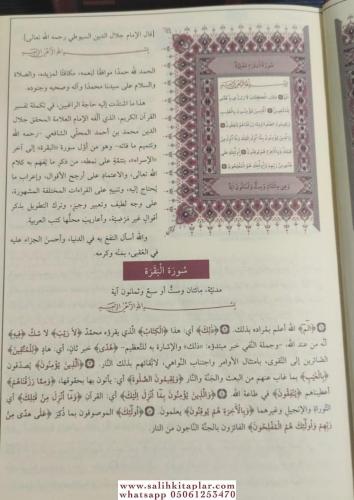 [قال الإمام جلال الدين السيوطي رحمه الله تعالى]
الحمد لله حمدًا موافيًا لنعمه، مكافئًا لمزيده، والصلاة
والسلام على سيدنا محمد وآله وصحبه وجنوده.
هذا ما اشتدّت إليه حاجة الراغبين، في تكملة تفسير
القرآن الكريم، الذي ألّفه الإمام العلامة المحقق جلال
الدين محمد بن أحمد المحلّي الشافعي -رحمه الله
وتتميم ما فاته- وهو من أوّل سورة «البقرة» إلى آخر
«الإسراء»، بتتمّةٍ على نمطه، من ذكر ما يُفهم به كلام
الله تعالى، والاعتماد على أرجح الأقوال، وإعراب ما
يُحتاج إليه، وتنبيهٍ على القراءات المختلفة المشهورة،
على وجهٍ لطيف وتعبيرٍ وجيز، وترك التطويل بذكر
أقوالٍ غير مَرضيّة، وأعاريبَ محلُّها كتب العربية.
والله أسأل النفع به في الدنيا، وأحسن الجزاء عليه
في العقبى، بمنّه وكرمه.
سُورَةُ الْبَقَرَةِ
مدنيّة، مائتان وستٌّ أو سبعٌ وثمانون آية
﴿الٓمٓ﴾ الله أعلم بمراده بذلك. ﴿ذَٰلِكَ﴾ أي: هذا ﴿الْكِتَابُ﴾ الذي يقرؤه محمدٌ ﴿لَا رَيْبَ﴾ لا شكّ ﴿فِيهِ﴾
أنّه من عند الله، -وجملة النفي خبر مبتدؤه: «ذلك»، والإشارة به للتعظيم- ﴿هُدًى﴾ خبر ثانٍ، أي: هادٍ ﴿لِلْمُتَّقِينَ﴾
الصائرين إلى التقوى، بامتثال الأوامر واجتناب النواهي، لاتّقائهم بذلك النار. ﴿الَّذِينَ يُؤْمِنُونَ﴾ يصدقون
﴿بِالْغَيْبِ﴾ بما غاب عنهم من البعث والجنّة والنّار ﴿وَيُقِيمُونَ الصَّلَاةَ﴾ أي: يأتون بها بحقوقها، ﴿وَمِمَّا رَزَقْنَاهُمْ﴾
أعطيناهم ﴿يُنْفِقُونَ﴾ في طاعة الله. ﴿وَالَّذِينَ يُؤْمِنُونَ بِمَا أُنْزِلَ إِلَيْكَ﴾ أي: القرآن ﴿وَمَا أُنْزِلَ مِنْ قَبْلِكَ﴾ أي:
التوراة والإنجيل وغيرهما ﴿وَبِالْآخِرَةِ هُمْ يُوقِنُونَ﴾ يعلمون. ﴿أُولَٰئِكَ﴾ الموصوفون بما ذُكِرَ ﴿عَلَىٰ هُدًى مِنْ
رَبِّهِمْ وَأُولَٰئِكَ هُمُ الْمُفْلِحُونَ﴾ الفائزون بالجنّة الناجون من النار.
www.salihkitaplar.com
whatsapp 05061253470